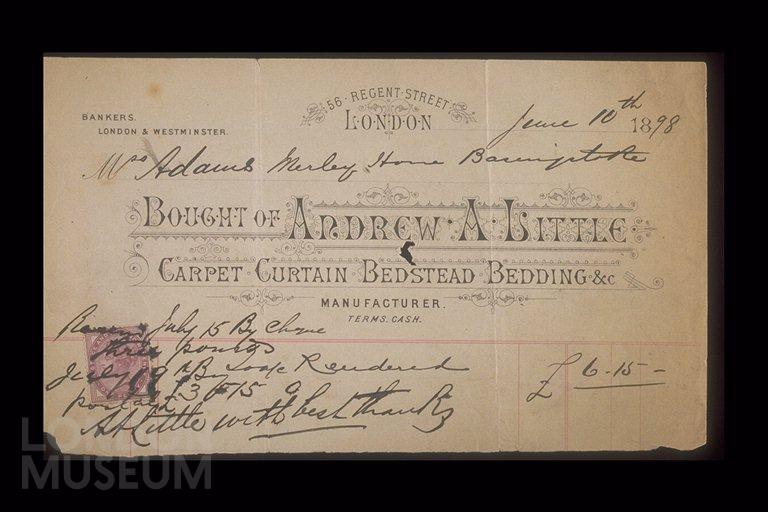 56 · REGENT · STREET
LONDON
BANKERS.
LONDON & WESTMINSTER.
June 10th 1898
Mrs Adams Merley Home Basingstoke
BOUGHT OF ANDREW · A · LITTLE
CARPET · CURTAIN · BEDSTEAD · BEDDING · &c
MANUFACTURER.
TERMS. CASH.
July 15 By Cheque
three pounds
July 19 By Rendered
£ 6-15-
£3-15-0
A A Little with best thanks
LONDON
MUSEUM